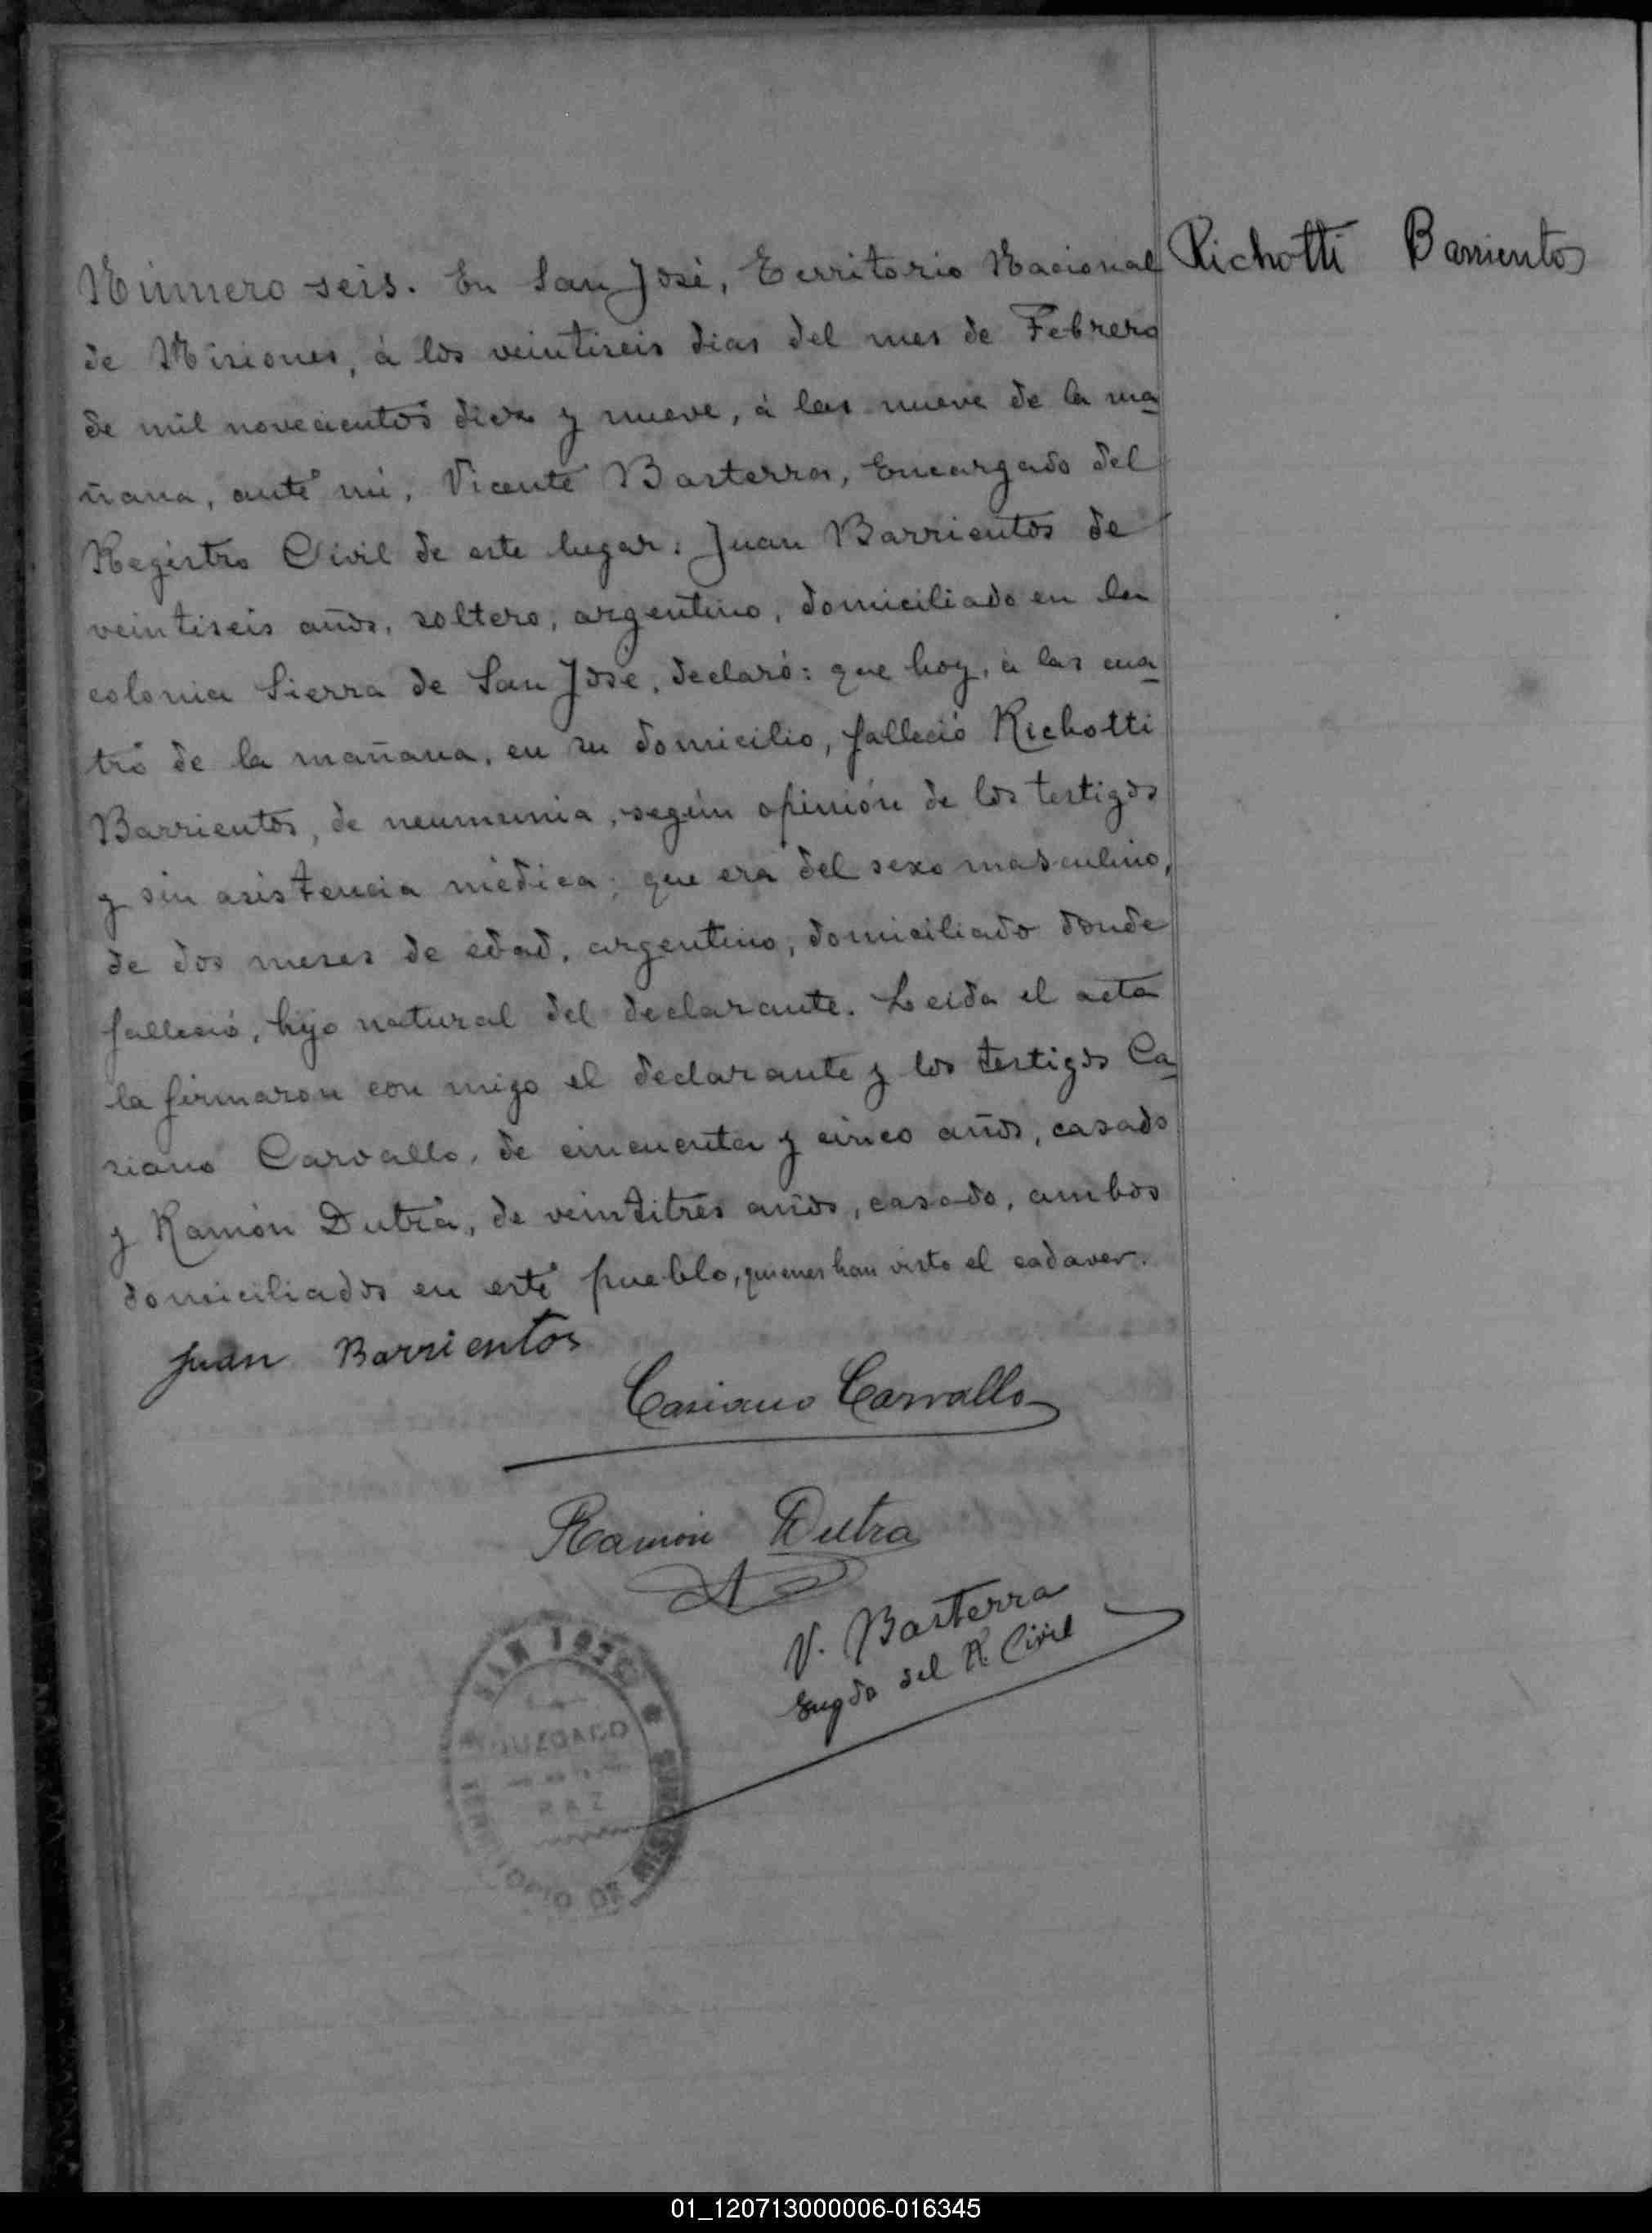 Número seis. En San José, Territorio Nacional
Richotti Barrientos
de Misiones, á los veintiseis dias del mes de Febrero
de mil novecientos diez y nueve, á las nueve de la ma
ñana, ante mí, Vicente Basterra, Encargado del
Registro Civil de este lugar. Juan Barrientos de
veintiseis años, soltero, argentino, domiciliado en la
colonia Sierra de San José, declaró: que hoy, á las cua
tro de la mañana, en su domicilio, falleció Richotti
Barrientos, de neumunia, según opinión de los testigos
y sin asistencia médica; que era del sexo masculino,
de dos meses de edad, argentino, domiciliado donde
falleció, hijo natural del declarante. Leida el acta
la firmaron con migo el declarante y los testigos Ca
siano Carvallo, de cincuenta y cinco años, casado
y Ramón Dutra, de veintitrés años, casado, ambos
domiciliados en este pueblo, quienes han visto el cadaver.
Juan Barrientos
Casiano Carvallo
Ramón Dutra
V. Basterra
Engdo del R. Civil
SAN JOSE
JUZGADO
DE
PAZ
TERRITORIO DE MISIONES
01_120713000006-016345